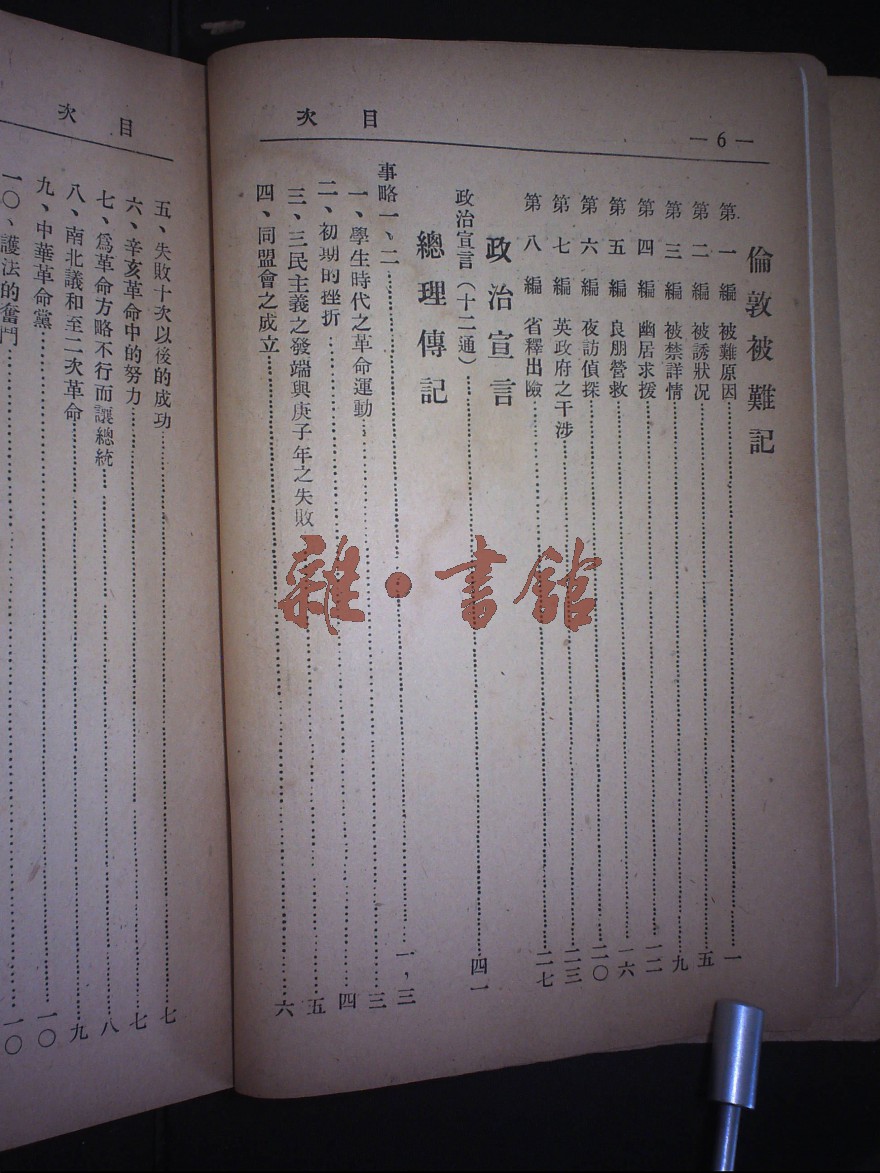 —6—
目次
倫敦被難記
第一編 被難原因……一
第二編 被誘狀況……五
第三編 被禁詳情……九
第四編 幽居求援……一二
第五編 良朋營救……一六
第六編 夜訪偵探……二〇
第七編 英政府之干涉……二三
第八編 省釋出險……二七
政治宣言
政治宣言(十二通)……四一
總理傳記
事略一、二……一,三
一、學生時代之革命運動……三
二、初期的挫折……四
三、三民主義之發端與庚子年之失敗……五
四、同盟會之成立……六
目次
五、失敗十次以後的成功……七
六、辛亥革命中的努力……七
七、爲革命方略不行而讓總統……八
八、南北議和至二次革命……九
九、中華革命黨……一〇
一〇、護法的奮鬥……一〇
雜·書館